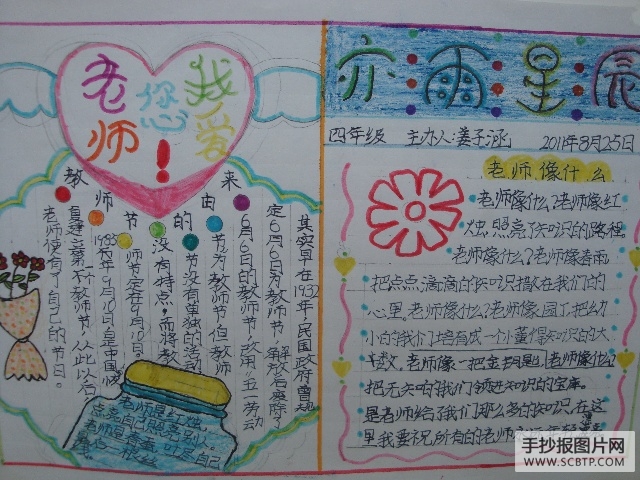 老师
您
我爱
!
教师节的由来
其实早在1932年,民国政府曾规
定6月6日为教师节,解放后废除了
6月6日的教师节,改用“五一”劳动
节为教师节,但教师
节没有单独的活动
没有特点,而将教
师节定在9月10日。
1985年9月10日,是中国恢
复建立第一个教师节,从此以后
老师便有了自己的节日。
老师是红烛,
照亮别人。
自己
亦雨星辰
四年级 主办人:姜子涵 2011年8月25日
老师像什么
老师像什么?老师像红
烛,照亮了知识的路程。
老师像什么?老师像春雨,
把点点滴滴的知识播在我们的
心里。老师像什么?老师像园丁,把幼
小的我们培育成一个个懂得知识的大
树。老师像一把金钥匙,老师像什么?
把无知的我们领进知识的宝库。
是老师给了我们那么多的知识,在这
里我要祝所有的老师
手抄报图片网
WWW.SCBTP.COM